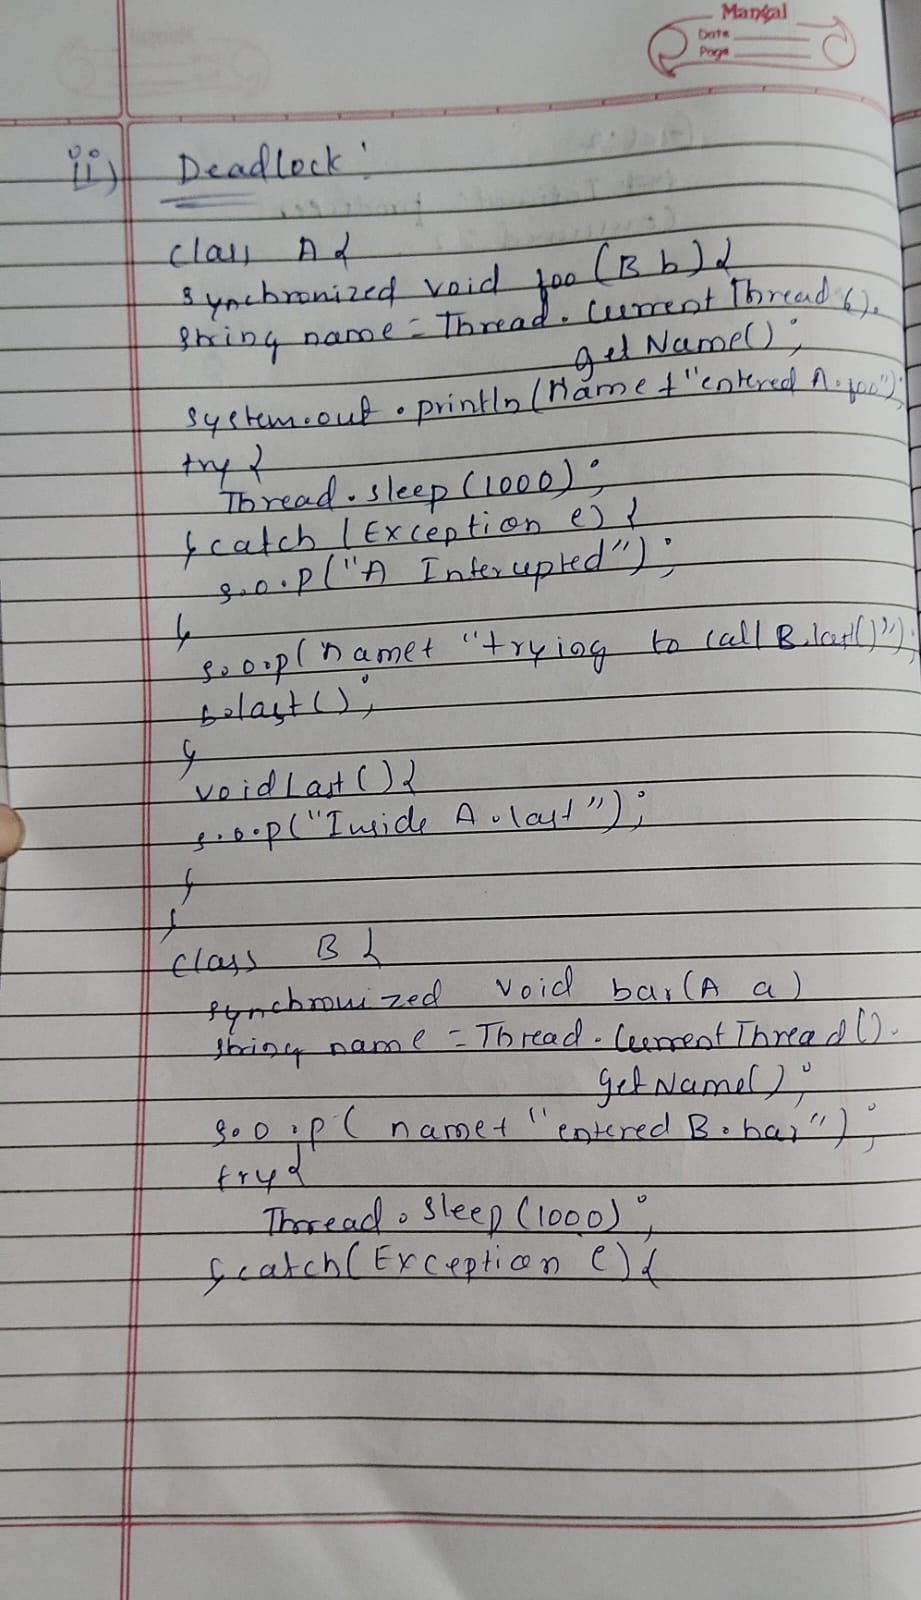 Mangal
Date
Page
ii) Deadlock:
class A {
synchronized void foo (B b) {
string name = Thread. Current Thread ().
get Name();
system.out.println (Name + "entered A.foo");
try {
Thread.sleep (1000);
} catch (Exception e) {
s.o.p ("A Interupted");
}
s.o.p ( name + "trying to call B.last()");
b.last ();
}
void Last () {
s.o.p ("Inside A.last");
}
}
class B {
synchronized void bar (A a)
string name = Thread. Current Thread ().
getName();
s.o.p ( name + "entered B.bar");
try {
Thread.sleep (1000);
} catch ( Exception e) {